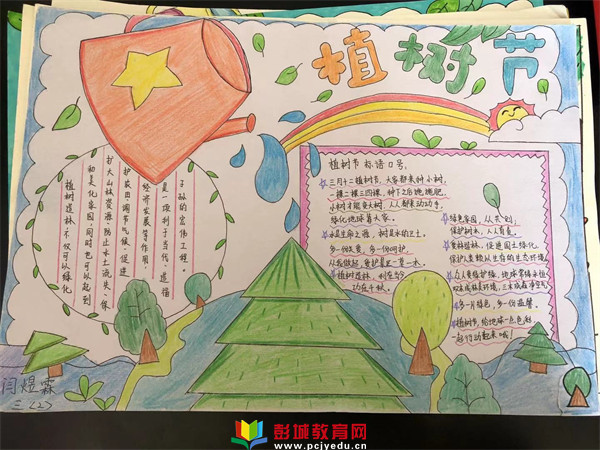 植树节
植树节标语口号。
三月十二植树节，大家都来种小树，
一棵二棵三四棵，种下之后施施肥，
小树才能变大树，人人都来动动手，
绿化地球为大家。
水是生命之源，树是水的卫士。
多一份关爱，多一份呵护，
从我做起，爱护一草一木。
植树造林，利在当今
功在千秋。
绿色家园，从共创，
保护树木，人人有责。
爱林造林，促进国土绿化
保护人类赖以生存的生态环境
多一片绿色，多一份温馨。
植树节，给地球一点色彩
一起行动起来哦！
植树造林，不仅可以绿化
和美化家园，同时也可以起到
扩大山林资源，防止水土流失，保
护农田，调节气候，促进
经济发展等作用，
是一项利于当代、造福
子孙的宏伟工程。
闫煜霖
三〈2〉
彭城教育网
www.pcjyedu.cn